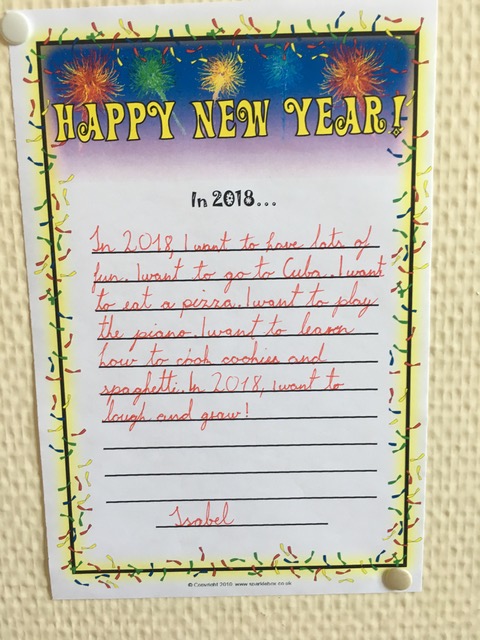 HAPPY NEW YEAR!
In 2018...
In 2018, I want to have lots of
fun. I want to go to Cuba. I want
to eat a pizza. I want to play
the piano. I want to learn
how to cook cookies and
spaghetti. In 2018, I want to
laugh and graw!
Isabel
© Copyright 2010 www.sparklebox.co.uk